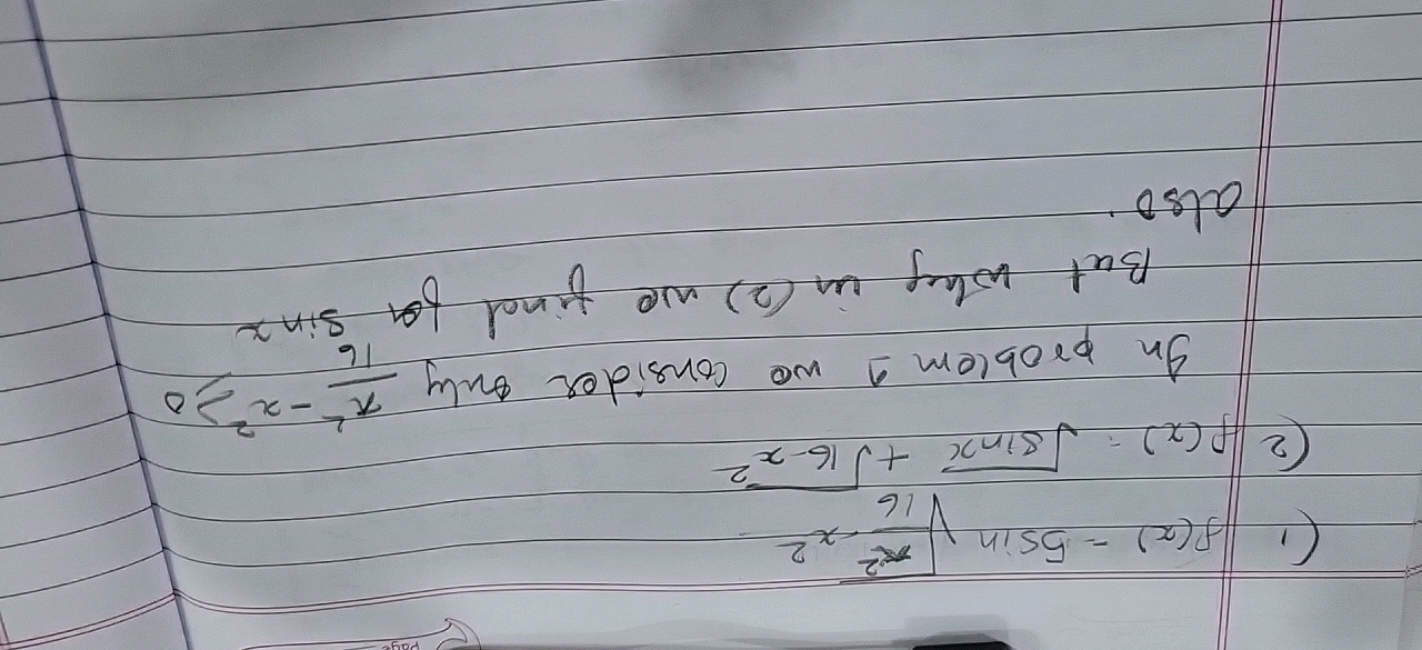 Page
(1 f(x) = 5sin √(π²/16 - x²)
(2 f(x) = √sinx + √16-x²
In problem 1 we consider only π²/16 - x² ≥ 0
But why in (2) we find for sinx
also.